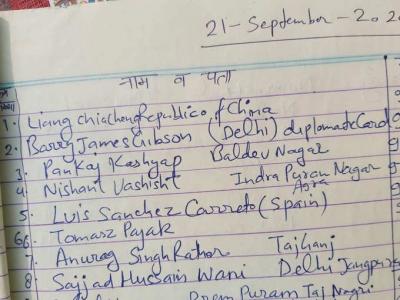 21-September-202
नाम व पता
1. Liang chiacheng Republic of China
2. Barry James Gibson (Delhi) diplomate Card
3. Pankaj Kashyap Baldev Nagar
4. Nishant Vashisht Indra Puram Nagar
Agra
5. Luis Sanchez Carreto (Spain)
6. Tomarz Pajak
7. Anurag Singh Rathor Tajganj
8. Sajjad Hussain Wani Delhi Jangpura
Prem Puram Taj Nagri